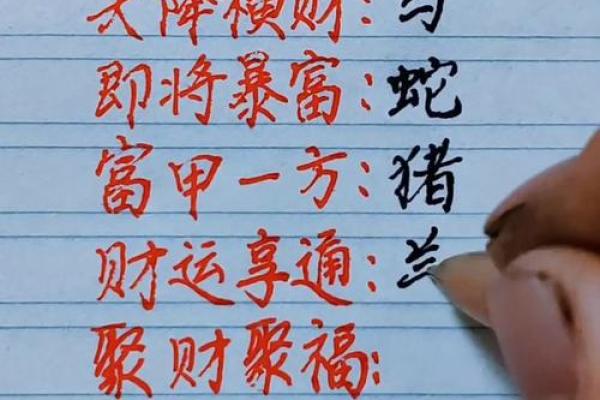 天降横财:马
即将暴富:蛇
富甲一方:猪
财运享通:
聚财聚福: